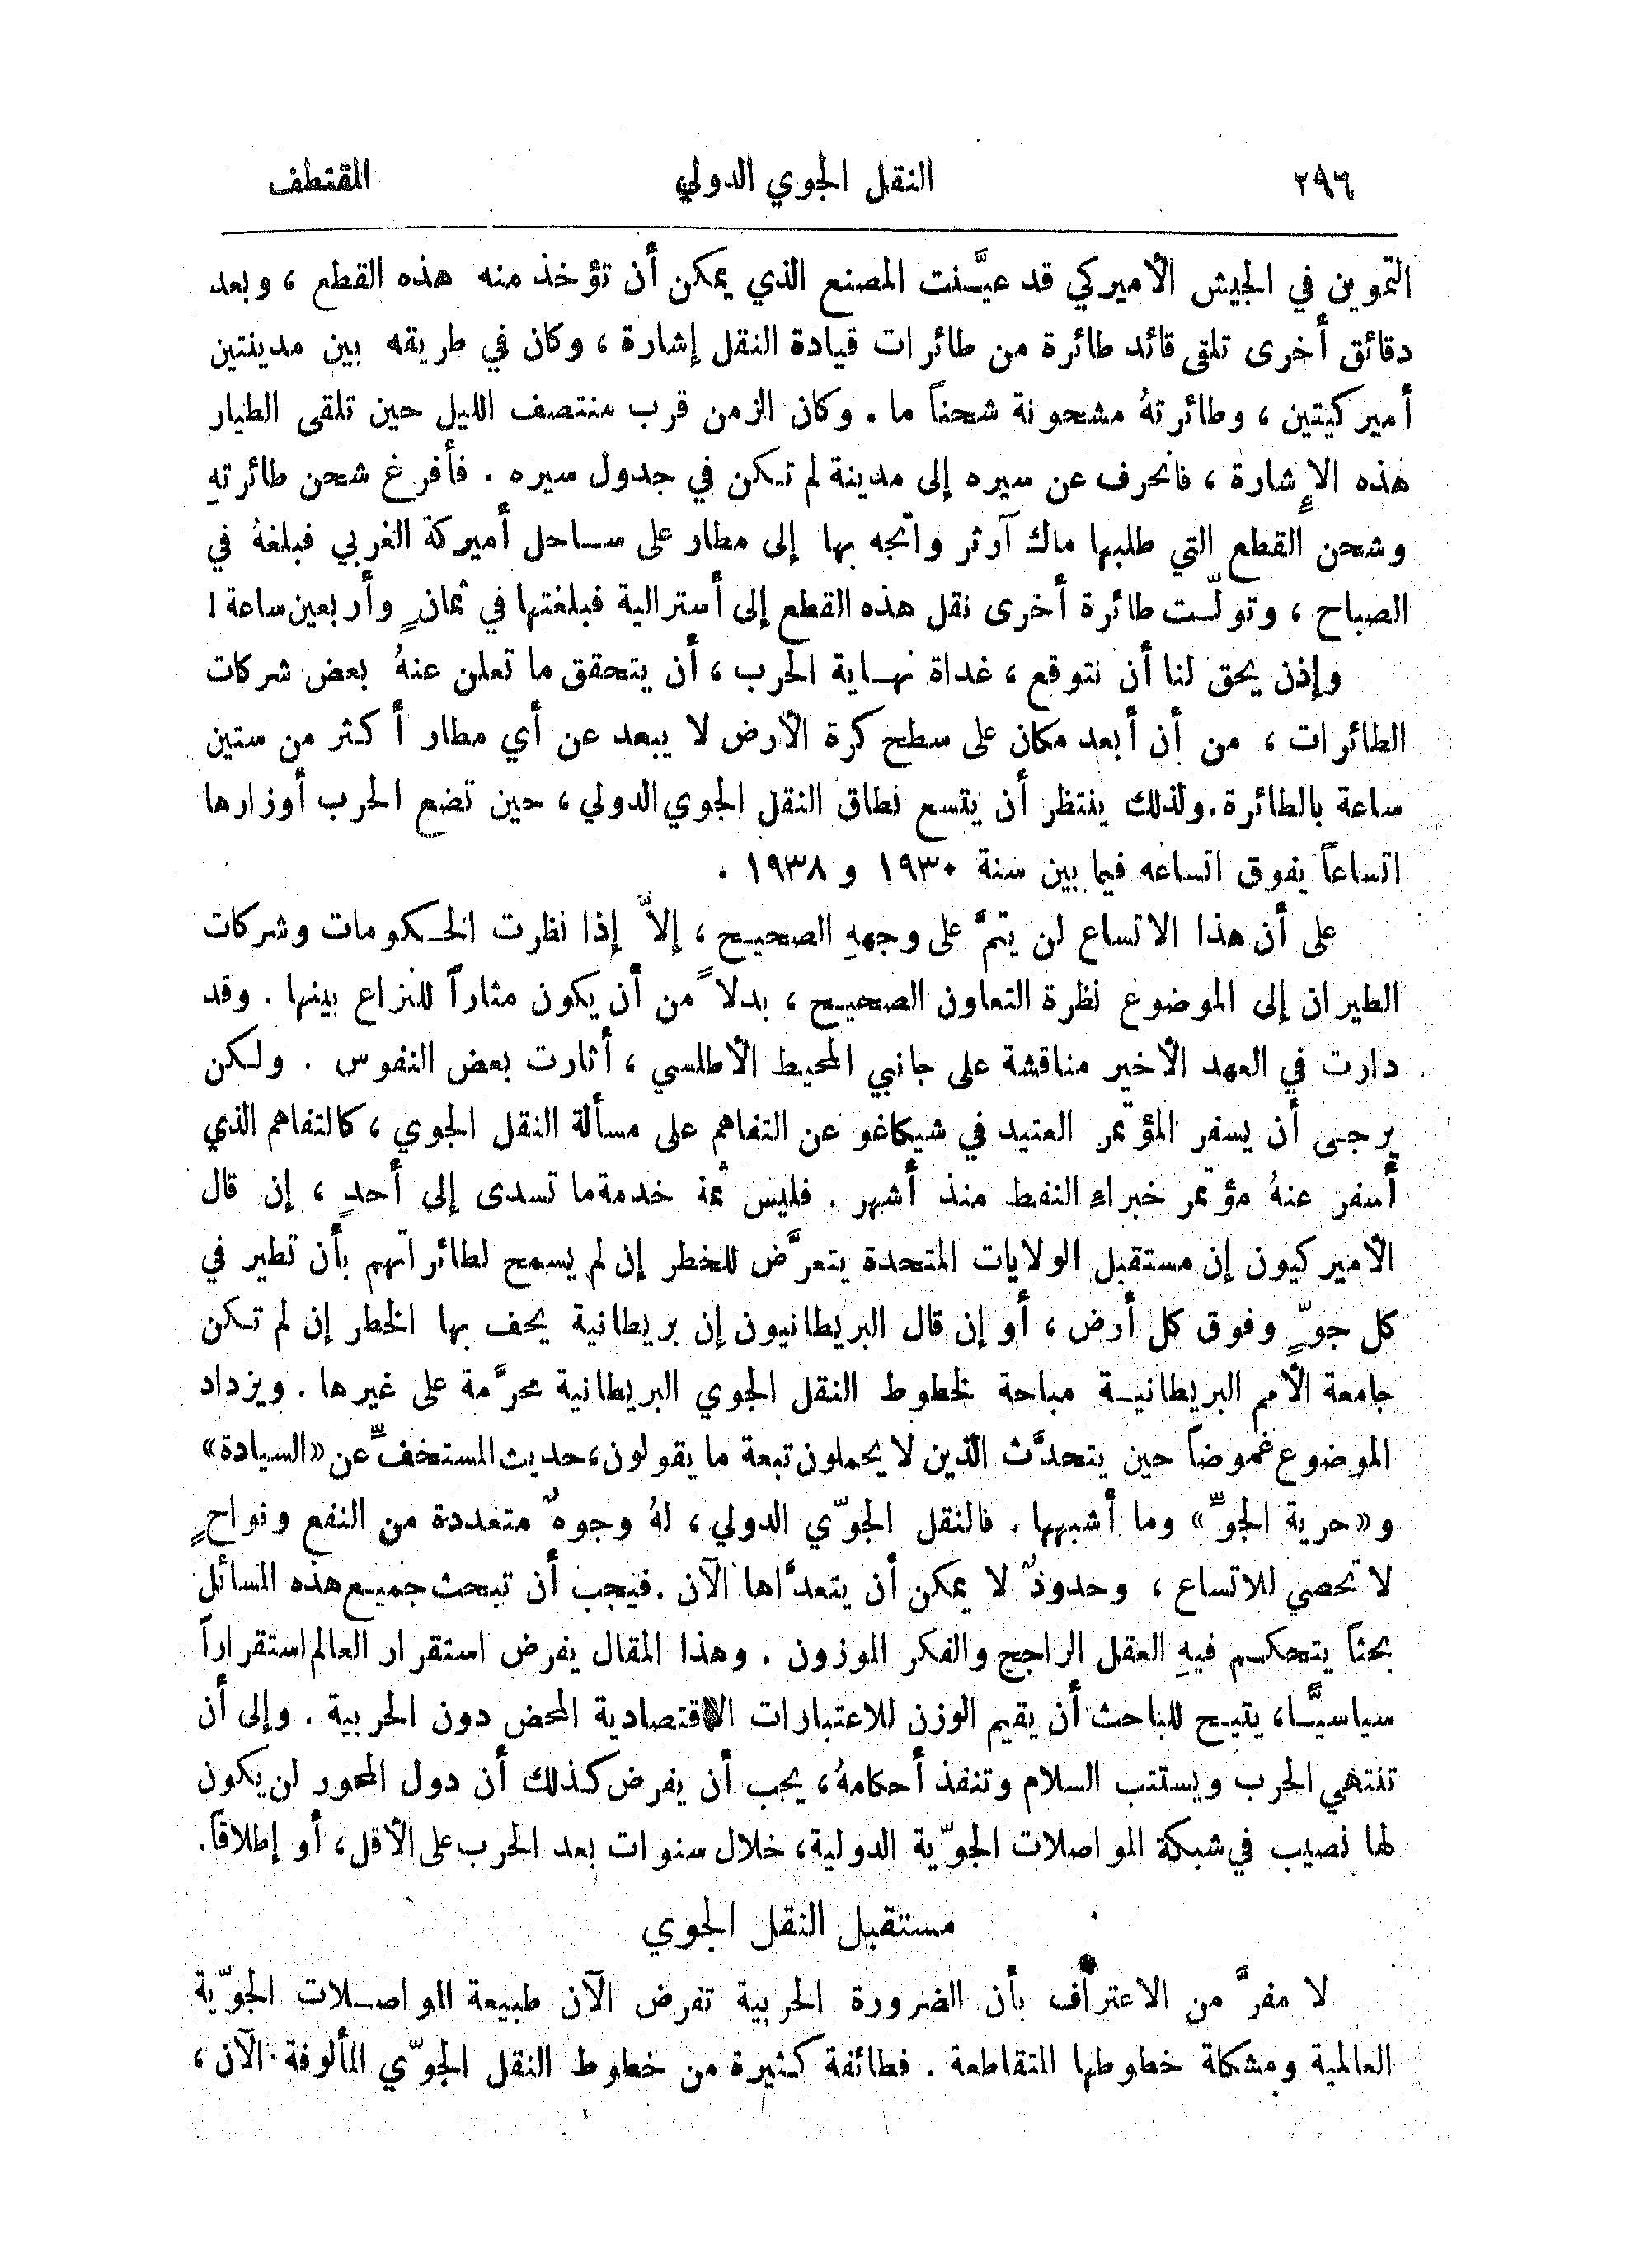 ٢٩٦ النقل الجوي الدولي المقتطف
التموين في الجيش الأميركي قد عيَّنت المصنع الذي يمكن أن تؤخذ منه هذه القطع ، وبعد
دقائق أخرى تلقى قائد طائرة من طائرات قيادة النقل إشارة ، وكان في طريقه بين مدينتين
أميركيتين ، وطائرتهُ مشحونة شحناً ما . وكان الزمن قرب منتصف الليل حين تلقى الطيار
هذه الإشارة ، فانحرف عن سيره إلى مدينة لم تكن في جدول سيره . فأفرغ شحن طائرتهِ
وشحن القطع التي طلبها ماك آرثر واتجه بها إلى مطار على ساحل أميركة الغربي فبلغهُ في
الصباح ، وتولّت طائرة أخرى نقل هذه القطع إلى أسترالية فبلغتها في ثمانٍ وأربعين ساعة !
وإذن يحق لنا أن نتوقع ، غداة نهاية الحرب ، أن يتحقق ما تعلن عنهُ بعض شركات
الطائرات ، من أن أبعد مكان على سطح كرة الأرض لا يبعد عن أي مطار أكثر من ستين
ساعة بالطائرة . ولذلك ينتظر أن يتسع نطاق النقل الجوي الدولي ، حين تضع الحرب أوزارها
اتساعاً يفوق اتساعه فيما بين سنة ١٩٣٠ و ١٩٣٨ .
على أن هذا الاتساع لن يتمَّ على وجههِ الصحيح ، إلاَّ إذا نظرت الحكومات وشركات
الطيران إلى الموضوع نظرة التعاون الصحيح ، بدلاً من أن يكون مثاراً للنزاع بينها . وقد
دارت في العهد الأخير مناقشة على جانبي المحيط الأطلسي ، أثارت بعض النفوس . ولكن
يرجى أن يسفر المؤتمر العتيد في شيكاغو عن التفاهم على مسألة النقل الجوي ، كالتفاهم الذي
أسفر عنهُ مؤتمر خبراء النفط منذ أشهر . فليس ثمة خدمة ما تسدى إلى أحدٍ ، إن قال
الأميركيون إن مستقبل الولايات المتحدة يتعرَّض للخطر إن لم يسمح لطائراتهم بأن تطير في
كل جوٍّ وفوق كل أرض ، أو إن قال البريطانيون إن بريطانية يحف بها الخطر إن لم تكن
جامعة الأمم البريطانية مباحة لخطوط النقل الجوي البريطانية محرَّمة على غيرها . ويزداد
الموضوع غموضاً حين يتحدَّث الذين لا يحملون تبعة ما يقولون ، حديث المستخفِّ عن «السيادة»
و«حرية الجوِّ» وما أشبهها . فالنقل الجوّي الدولي ، لهُ وجوهٌ متعددة من النفع ونواحٍ
لا تحصى للاتساع ، وحدودٌ لا يمكن أن يتعدَّاها الآن . فيجب أن تبحث جميع هذه المسائل
بحثاً يتحكم فيهِ العقل الراجح والفكر الموزون . وهذا المقال يفرض استقرار العالم استقراراً
سياسيًّا ، يتيح للباحث أن يقيم الوزن للاعتبارات الاقتصادية المحض دون الحربية . وإلى أن
تنتهي الحرب ويستتب السلام وتنفذ أحكامهُ ، يجب أن يفرض كذلك أن دول المحور لن يكون
لها نصيب في شبكة المواصلات الجوّية الدولية ، خلال سنوات بعد الحرب على الأقل ، أو إطلاقاً .
مستقبل النقل الجوي
لا مفرَّ من الاعتراف بأن الضرورة الحربية تفرض الآن طبيعة المواصلات الجوّية
العالمية ومشكلة خطوطها المتقاطعة . فطائفة كثيرة من خطوط النقل الجوّي المألوفة الآن ،